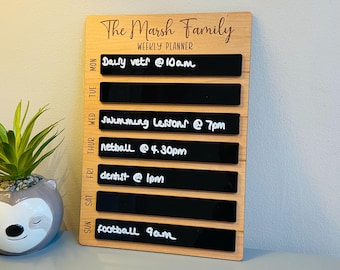 The Marsh Family
WEEKLY PLANNER
MON
Daisy vets @ 10am
TUE
WED
swimming lessons @ 7pm
THUR
netball @ 4.30pm
FRI
dentist @ 1pm
SAT
SUN
football 9am